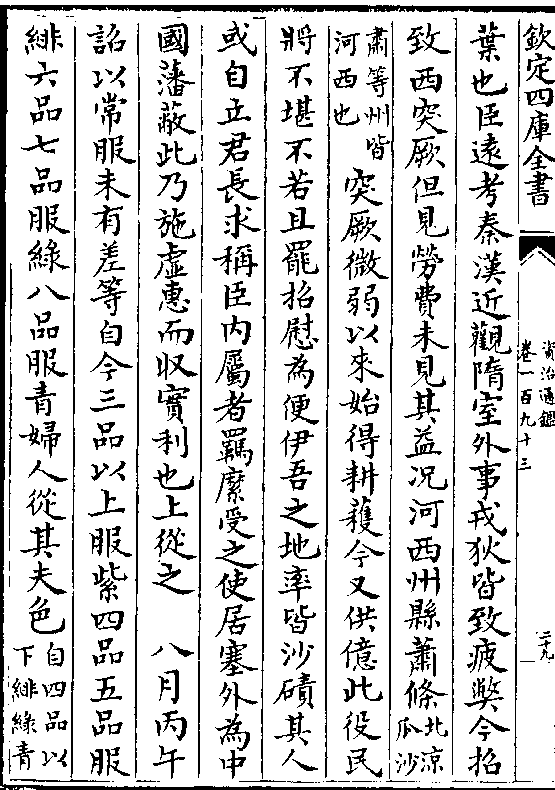 欽定四庫全書
資治通鑑
卷一百九十三
二十九
葉也臣遠考秦漢近觀隋室外事戎狄皆致疲弊今招
致西突厥但見勞費未見其益况河西州縣蕭條北涼瓜沙
肅等州皆河西也突厥微弱以來始得耕穫今又供億此役民
將不堪不若且罷招慰為便伊吾之地率皆沙磧其人
或自立君長求稱臣内屬者羈縻受之使居塞外為中
國藩蔽此乃施虚惠而収實利也上從之 八月丙午
詔以常服未有差等自今三品以上服紫四品五品服
緋六品七品服綠八品服青婦人從其夫色自四品以下緋綠青